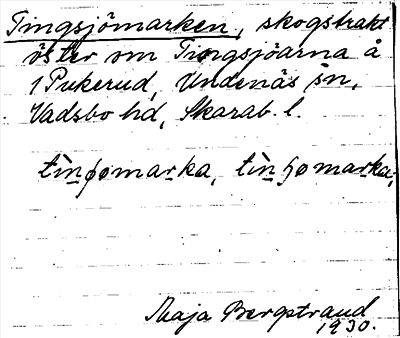 Tingsjömarken, skogstrakt
öster om Tingsjöarna å
1 Pukerud, Undenäs sn,
Vadsbo hd, Skarab. l.
Maja Bergstrand
1930.